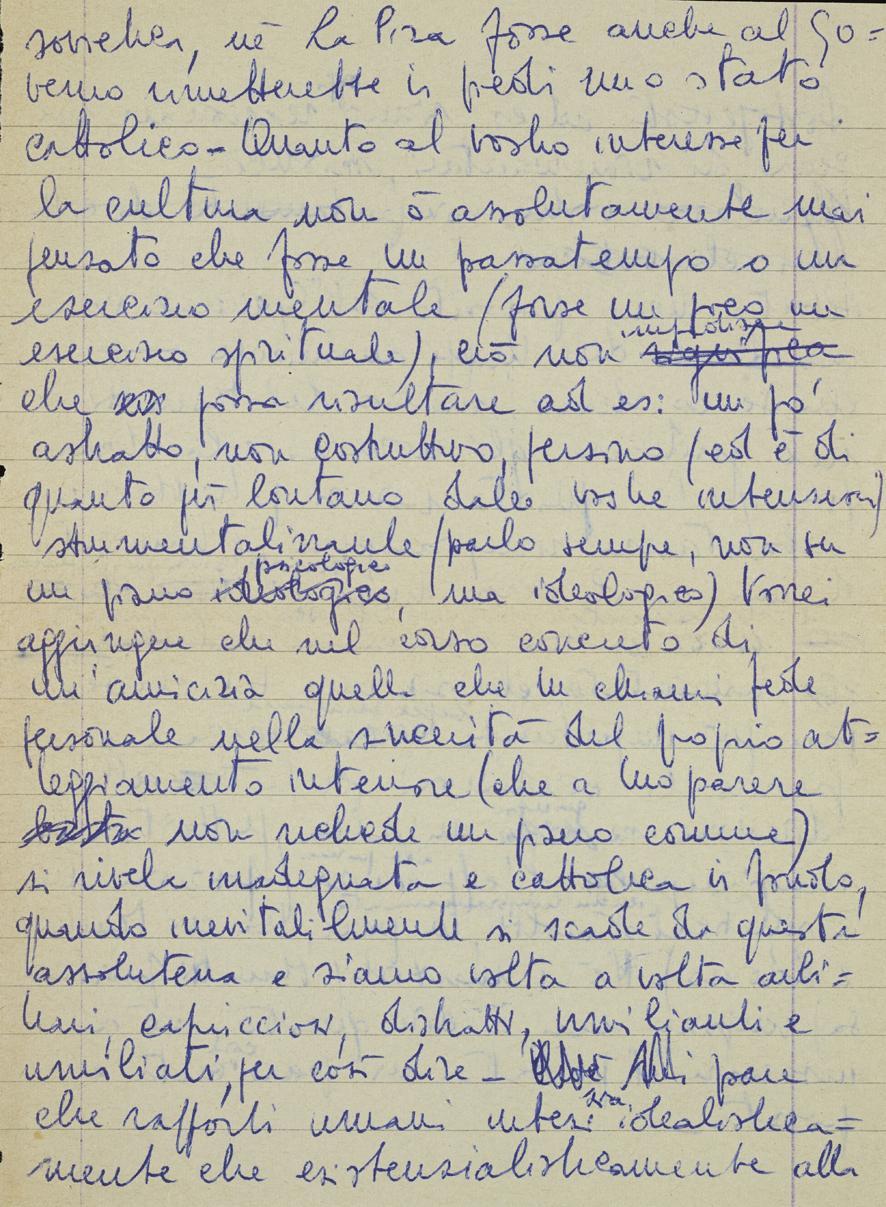 sovietica, nè La Pira fosse anche al Go=
verno rimetterebbe in piedi uno stato
cattolico - Quanto al vostro interesse per
la cultura non ò assolutamente mai
pensato che fosse un passatempo o un
esercizio mentale (forse un poco un
esercizio spirituale), ciò non impedisce significa
che possa risultare ad es: un po'
astratto, non costruttivo, persino (ed è di
quanto più lontano dalle vostre intenzioni)
strumentalizzante (parlo sempre, non su
un piano psicologico ideologico, ma ideologico) Vorrei
aggiungere che nel corso concreto di
un'amicizia quella che tu chiami fede
personale nella sincerità del proprio at=
teggiamento interiore (che a tuo parere
basta non richiede un piano comune)
si rivela inadeguata e cattolica in fondo,
quando inevitabilmente si scade da questa
assolutezza e siamo volta a volta arbi=
trari, capricciosi, distratti, umilianti e
umiliati, per così dire - Mi pare
che rapporti umani intesi sia idealistica=
mente che esistenzialisticamente alla